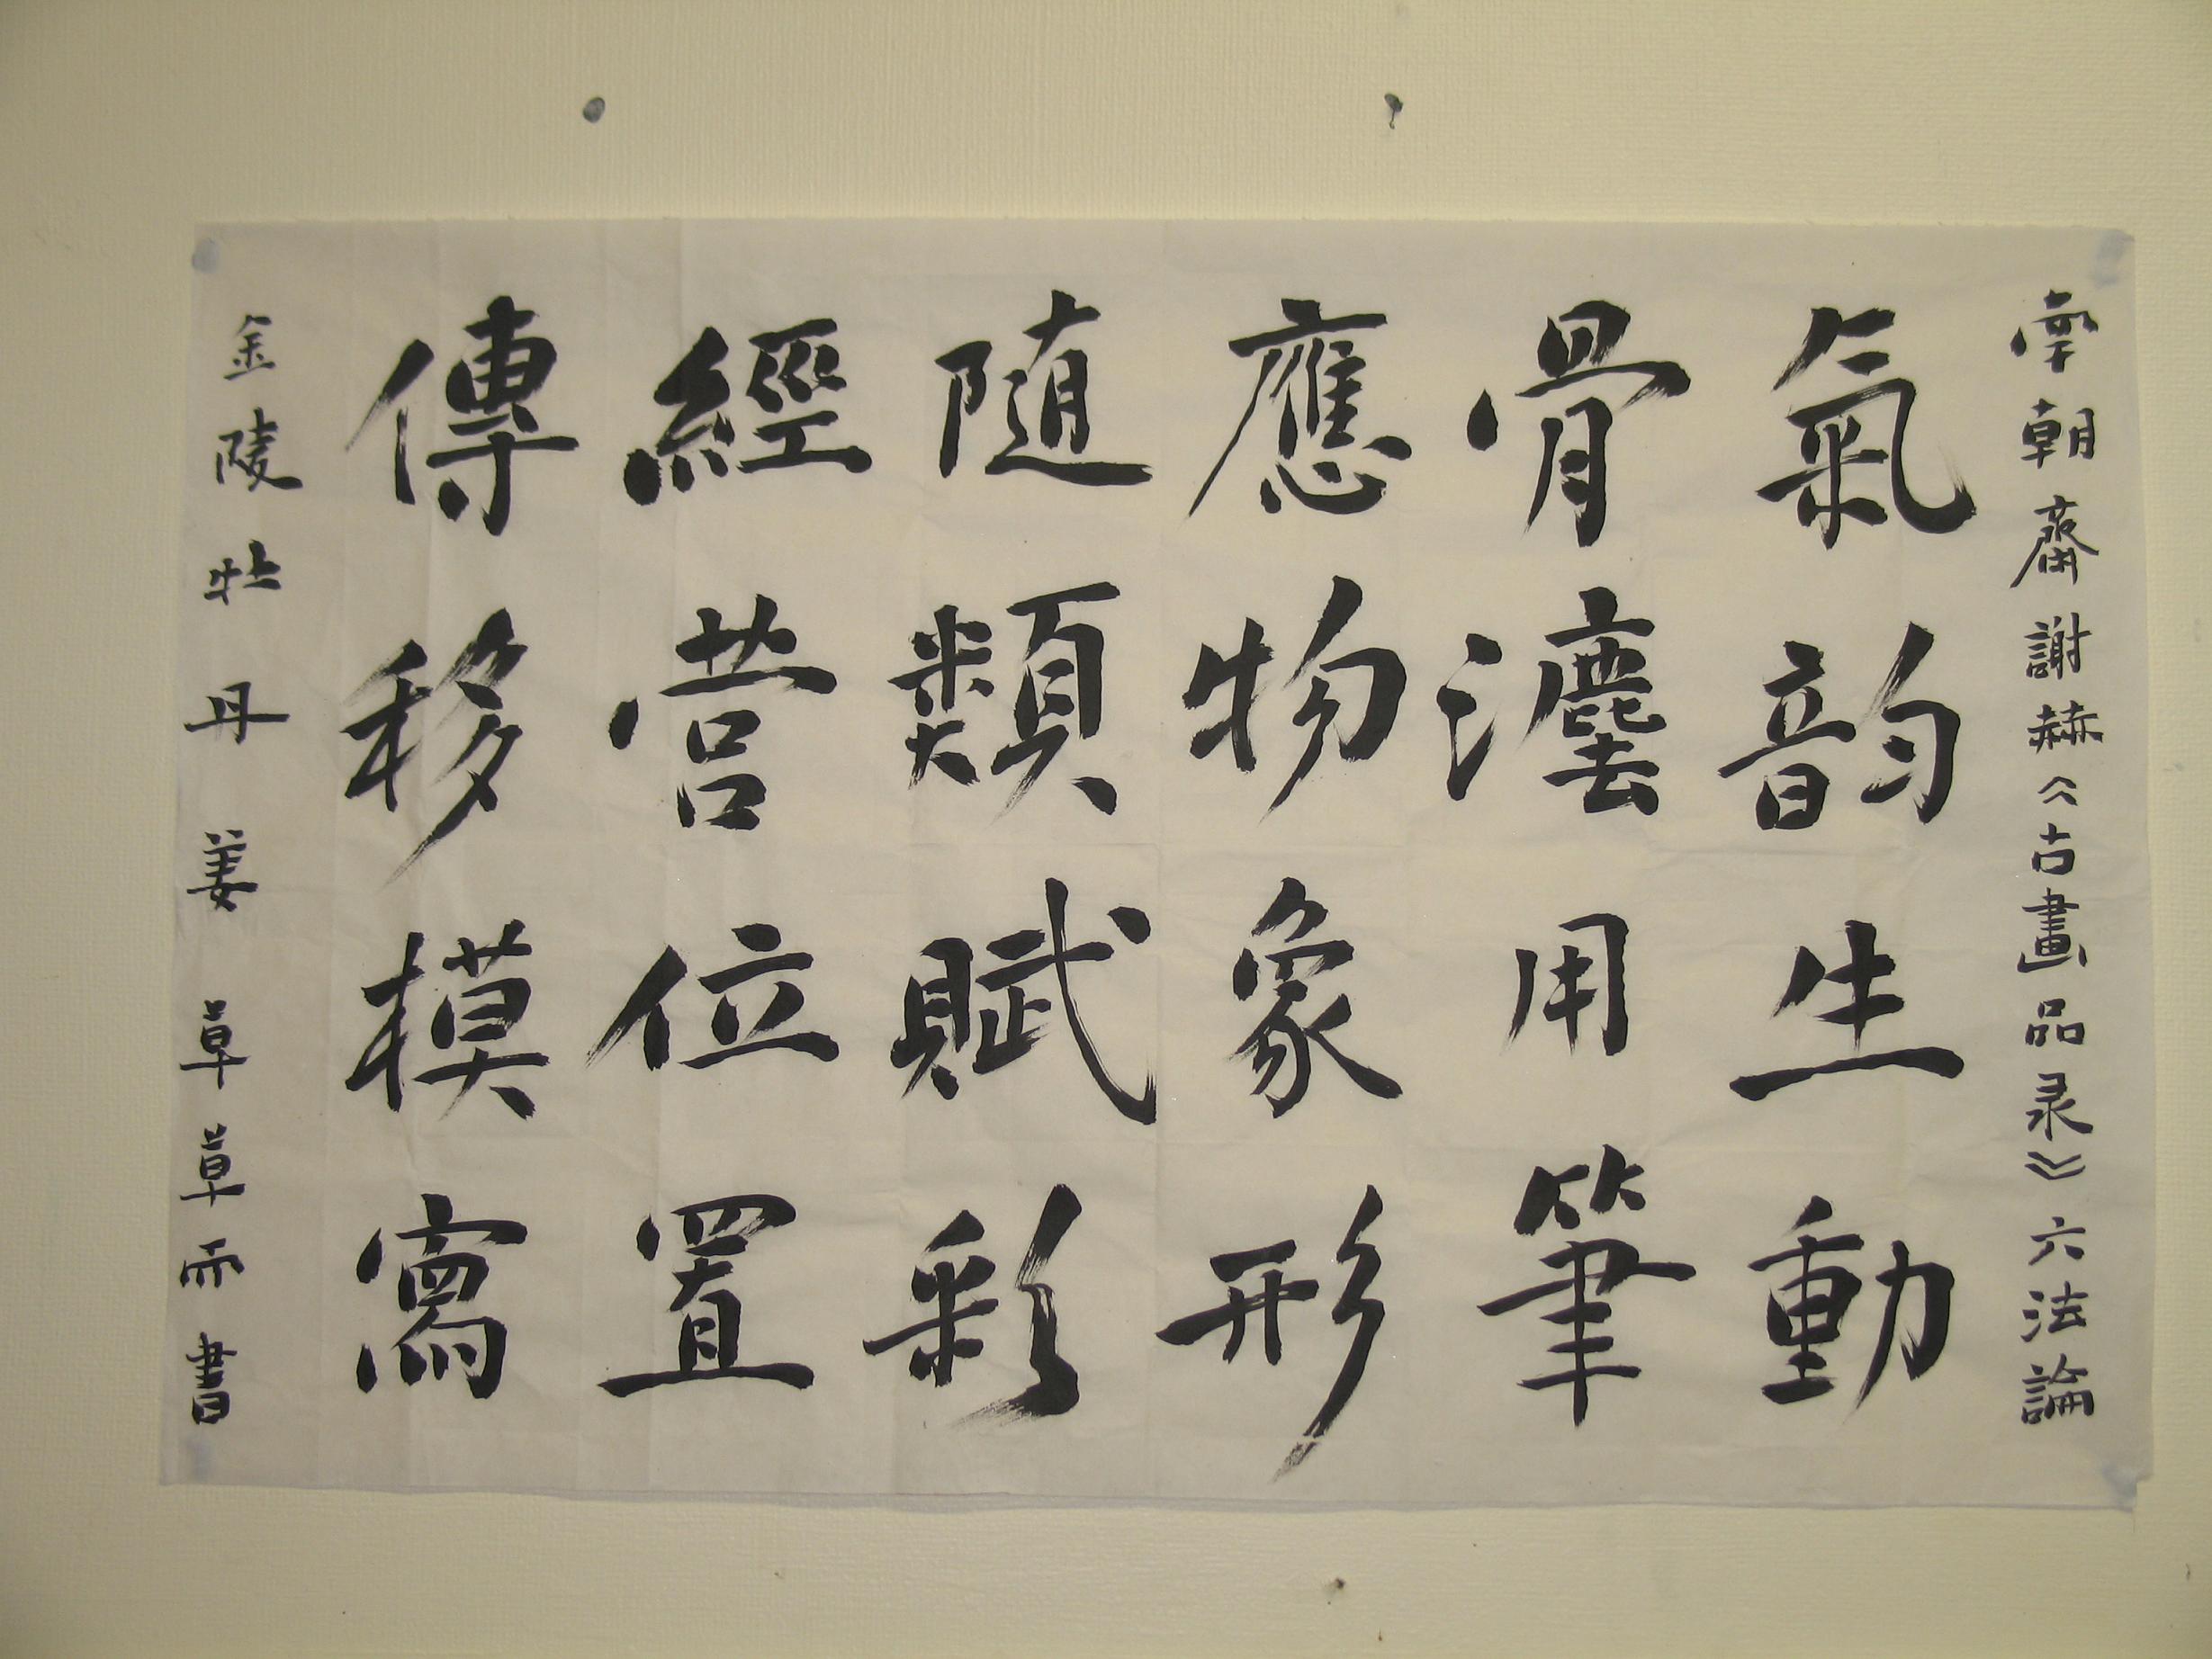 南朝齊謝赫《古畫品录》六法論
氣韵生動
骨灋用筆
應物象形
随類賦彩
經营位置
傳移模寫
金陵牡丹姜草草而書